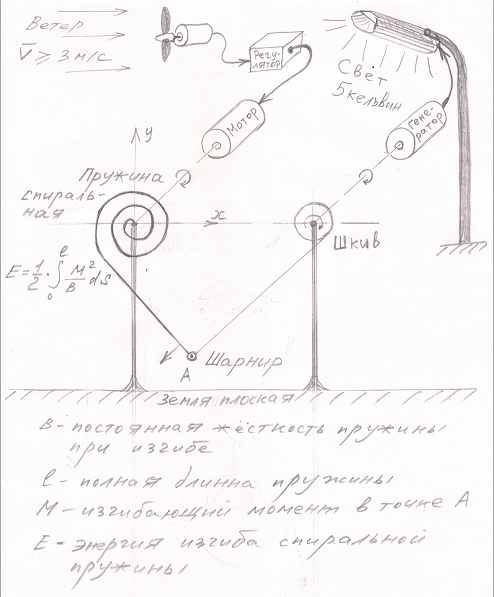 Ветер
V̅ ≥ 3 м/с
Регу-
лятор
Мотор
Свет
5 кельвин
Гене-
ратор
y
Пружина
спираль-
ная
x
Шкив
E = 1/2 · ∫₀ˡ M²/B ds
Шарнир
A
Земля плоская
B - постоянная жёсткость пружины
при изгибе
l - полная длинна пружины
M - изгибающий момент в точке A
E - энергия изгиба спиральной
пружины